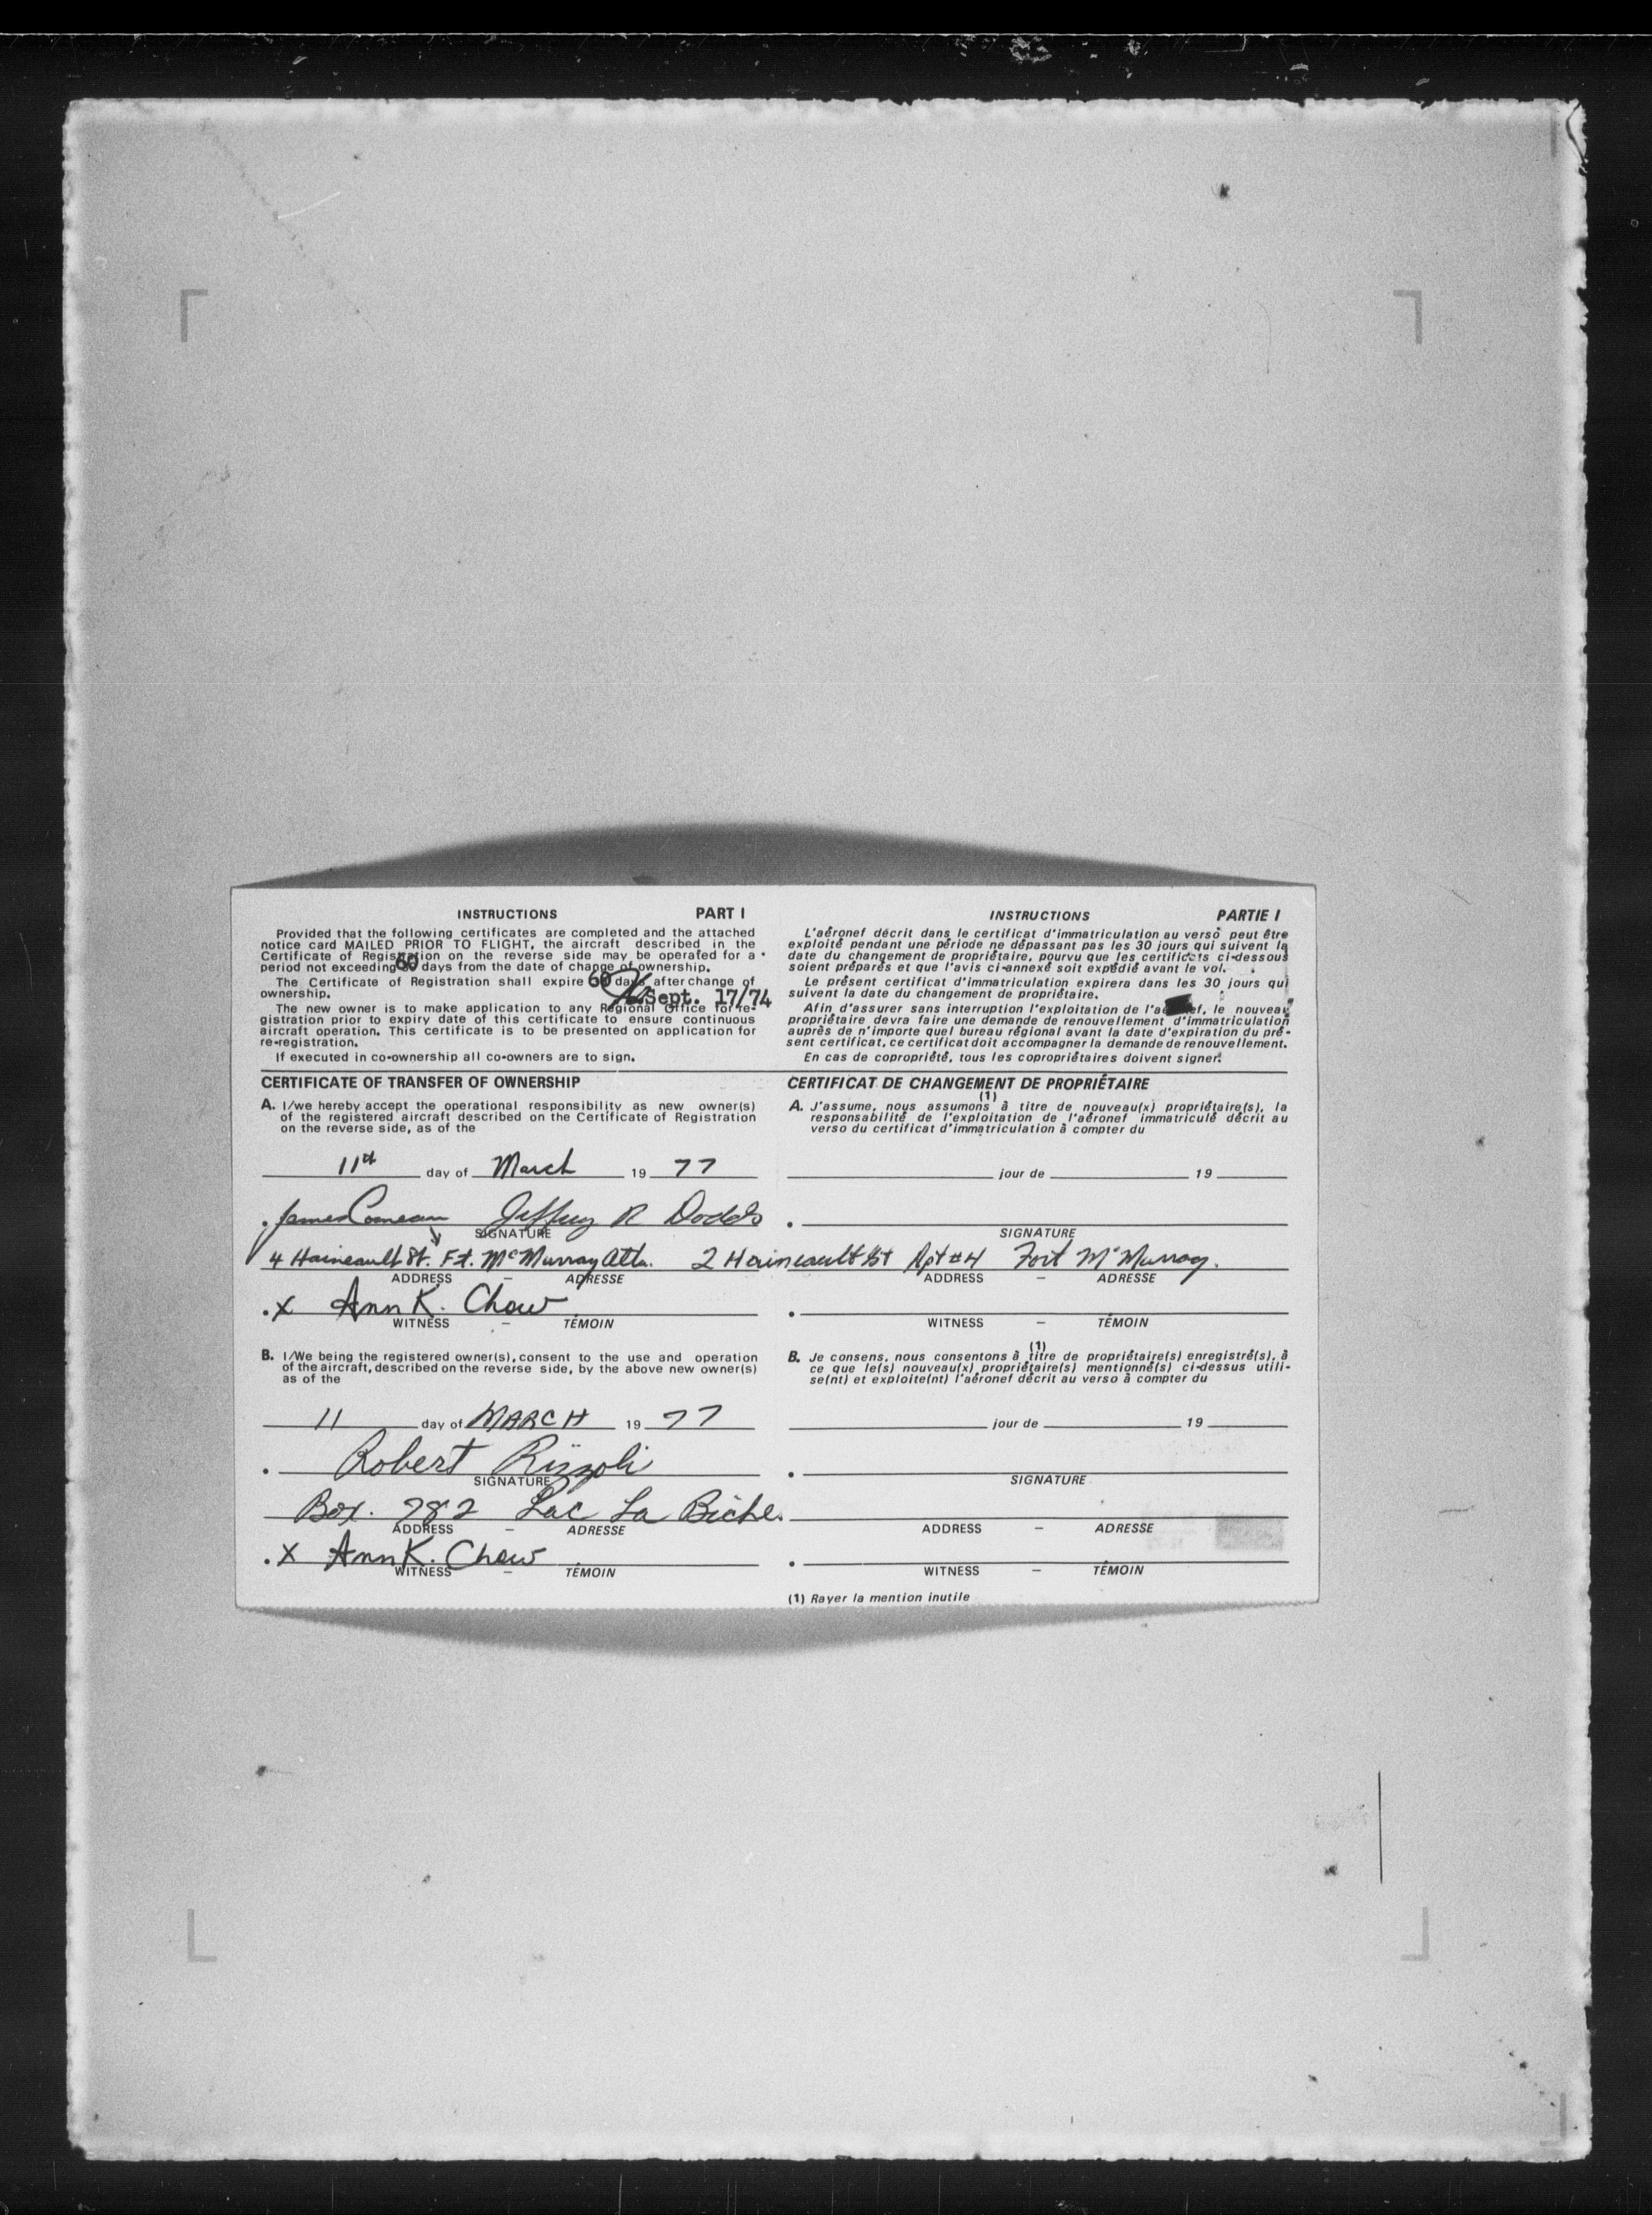 INSTRUCTIONS PART I
Provided that the following certificates are completed and the attached
notice card MAILED PRIOR TO FLIGHT, the aircraft described in the
Certificate of Registration on the reverse side may be operated for a
period not exceeding 60 days from the date of change of ownership.
The Certificate of Registration shall expire 60 days after change of
ownership. Sept. 17/74
The new owner is to make application to any Regional Office for re-
gistration prior to expiry date of this certificate to ensure continuous
aircraft operation. This certificate is to be presented on application for
re-registration.
If executed in co-ownership all co-owners are to sign.
CERTIFICATE OF TRANSFER OF OWNERSHIP
A. I/we hereby accept the operational responsibility as new owner(s)
of the registered aircraft described on the Certificate of Registration
on the reverse side, as of the
11th day of March 19 77
James Comeau Jeffrey R Dodds
SIGNATURE
4 Haineault St. Ft. McMurray Alta. 2 Haineault St Apt #4 Fort McMurray.
ADDRESS – ADRESSE
x Ann K. Chow
WITNESS – TÉMOIN
B. I/We being the registered owner(s), consent to the use and operation
of the aircraft, described on the reverse side, by the above new owner(s)
as of the
11 day of MARCH 19 77
Robert Rizzoli
SIGNATURE
Box. 782 Lac La Biche.
ADDRESS – ADRESSE
x Ann K. Chow
WITNESS – TÉMOIN
INSTRUCTIONS PARTIE I
L'aéronef décrit dans le certificat d'immatriculation au verso peut être
exploité pendant une période ne dépassant pas les 30 jours qui suivent la
date du changement de propriétaire, pourvu que les certificats ci-dessous
soient préparés et que l'avis ci-annexé soit expédié avant le vol.
Le présent certificat d'immatriculation expirera dans les 30 jours qui
suivent la date du changement de propriétaire.
Afin d'assurer sans interruption l'exploitation de l'aéronef, le nouveau
propriétaire devra faire une demande de renouvellement d'immatriculation
auprès de n'importe quel bureau régional avant la date d'expiration du pré-
sent certificat, ce certificat doit accompagner la demande de renouvellement.
En cas de copropriété, tous les copropriétaires doivent signer.
CERTIFICAT DE CHANGEMENT DE PROPRIÉTAIRE
(1)
A. J'assume, nous assumons à titre de nouveau(x) propriétaire(s), la
responsabilité de l'exploitation de l'aéronef immatriculé décrit au
verso du certificat d'immatriculation à compter du
jour de 19
SIGNATURE
ADDRESS – ADRESSE
WITNESS – TÉMOIN
(1)
B. Je consens, nous consentons à titre de propriétaire(s) enregistré(s), à
ce que le(s) nouveau(x) propriétaire(s) mentionné(s) ci-dessus utili-
se(nt) et exploite(nt) l'aéronef décrit au verso à compter du
jour de 19
SIGNATURE
ADDRESS – ADRESSE
WITNESS – TÉMOIN
(1) Rayer la mention inutile